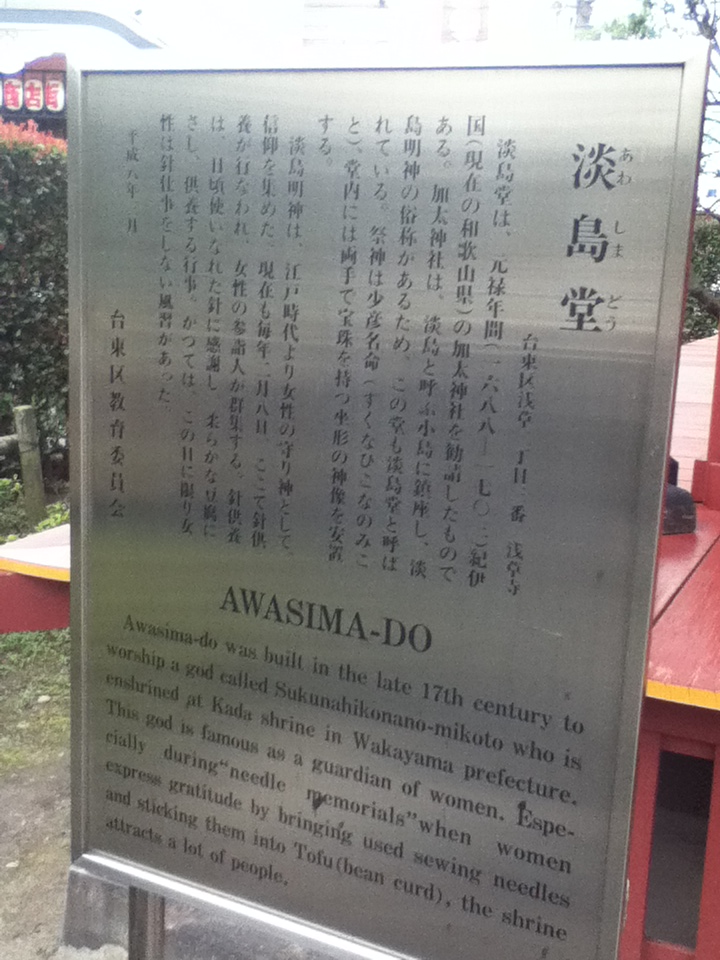 淡島堂
あわ しま どう
台東区浅草二丁目三番 浅草寺
淡島堂は、元禄年間(一六八八―一七〇三)紀伊
国(現在の和歌山県)の加太神社を勧請したもので
ある。加太神社は、淡島と呼ぶ小島に鎮座し、淡
島明神の俗称があるため、この堂も淡島堂と呼ば
れている。祭神は少彦名命(すくなひこなのみこ
と)、堂内には両手で宝珠を持つ坐形の神像を安置
する。
淡島明神は、江戸時代より女性の守り神として、
信仰を集めた。現在も毎年二月八日、ここで針供
養が行なわれ、女性の参詣人が群集する。針供養
は、日頃使いなれた針に感謝し、柔らかな豆腐に
さし、供養する行事。かつては、この日に限り女
性は針仕事をしない風習があった。
平成六年 月
台東区教育委員会
AWASIMA-DO
Awasima-do was built in the late 17th century to
worship a god called Sukunahikonano-mikoto who is
enshrined at Kada shrine in Wakayama prefecture.
This god is famous as a guardian of women. Espe-
cially during“needle memorials”when women
express gratitude by bringing used sewing needles
and sticking them into Tofu(bean curd), the shrine
attracts a lot of people.